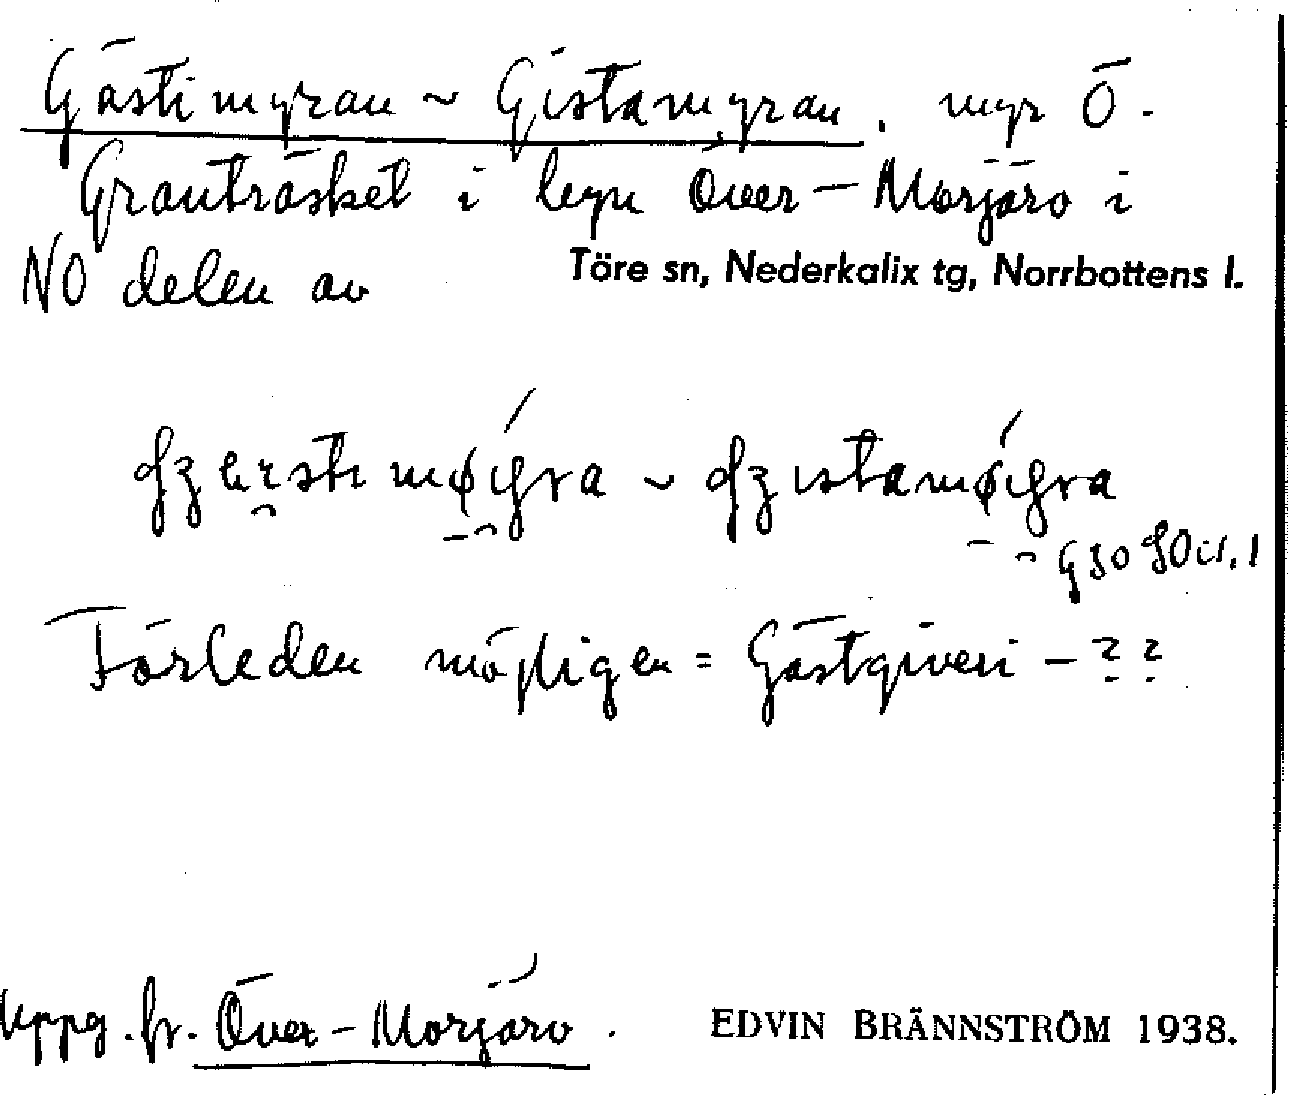 Gästimyran ~ Gistamyran, myr Ö.
Granträsket i byn Över-Morjärv i
NO delen av Töre sn, Nederkalix tg, Norrbottens l.
Förleden möjligen = Gästgiveri-??
Uppg. fr. Över-Morjärv. EDVIN BRÄNNSTRÖM 1938.